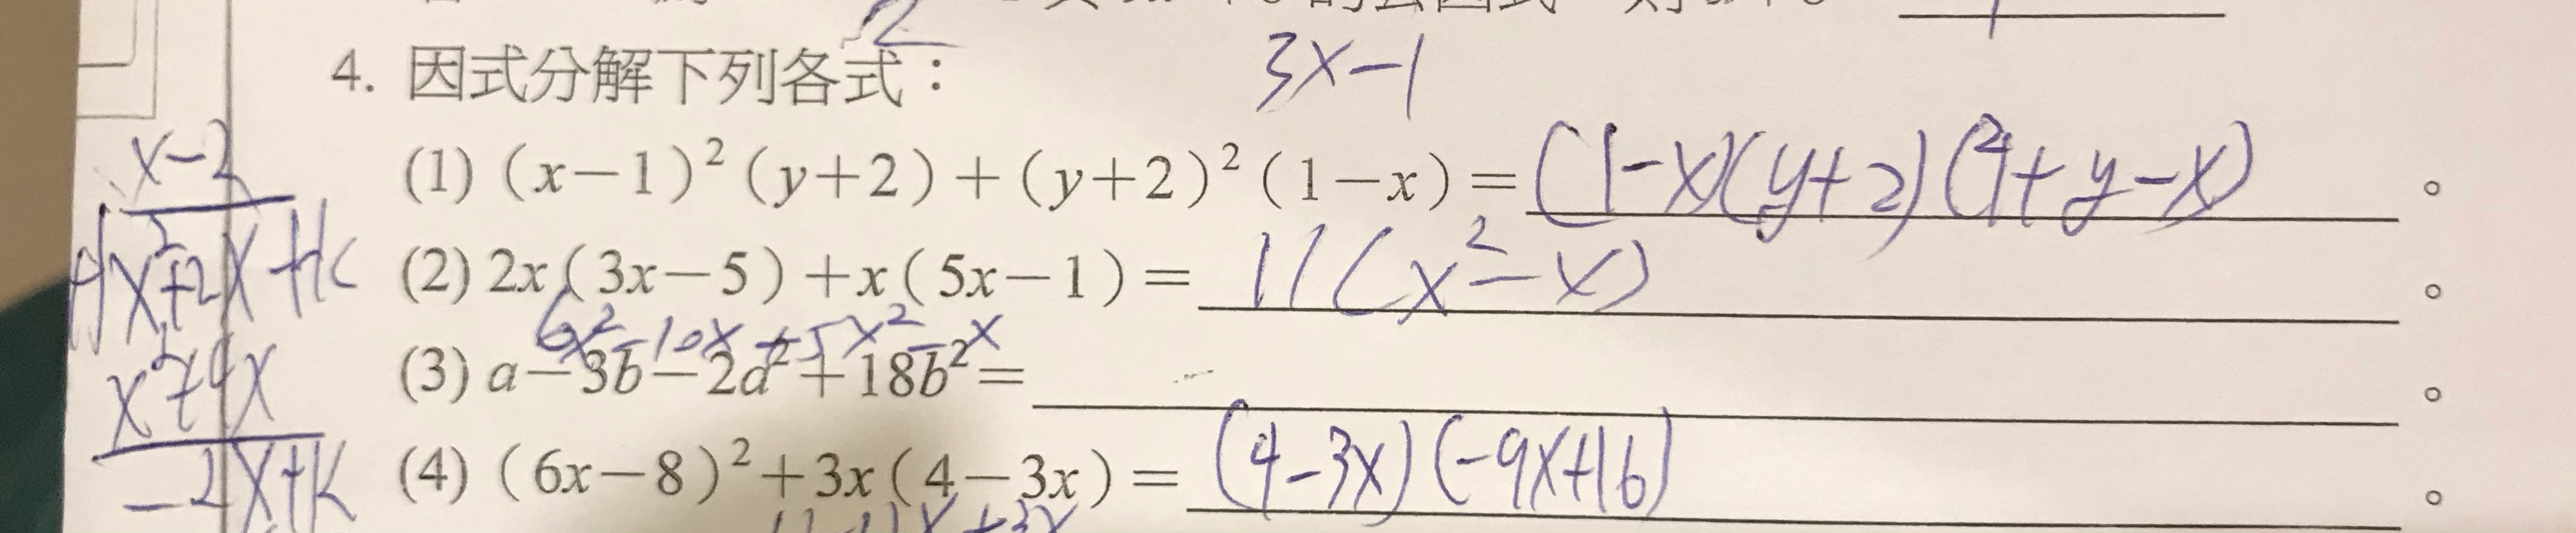 2
3x-1
4. 因式分解下列各式：
(1) (x-1)²(y+2)+(y+2)²(1-x)=(1-x)(y+2)(1+y-x)。
(2) 2x(3x-5)+x(5x-1)=11(x²-x)。
6x²-10x+5x²-x
(3) a-3b-2a²+18b²= 。
(4) (6x-8)²+3x(4-3x)=(4-3x)(-9x+16)。
x-2
x²+2x+k
x²+4x
-2x+k